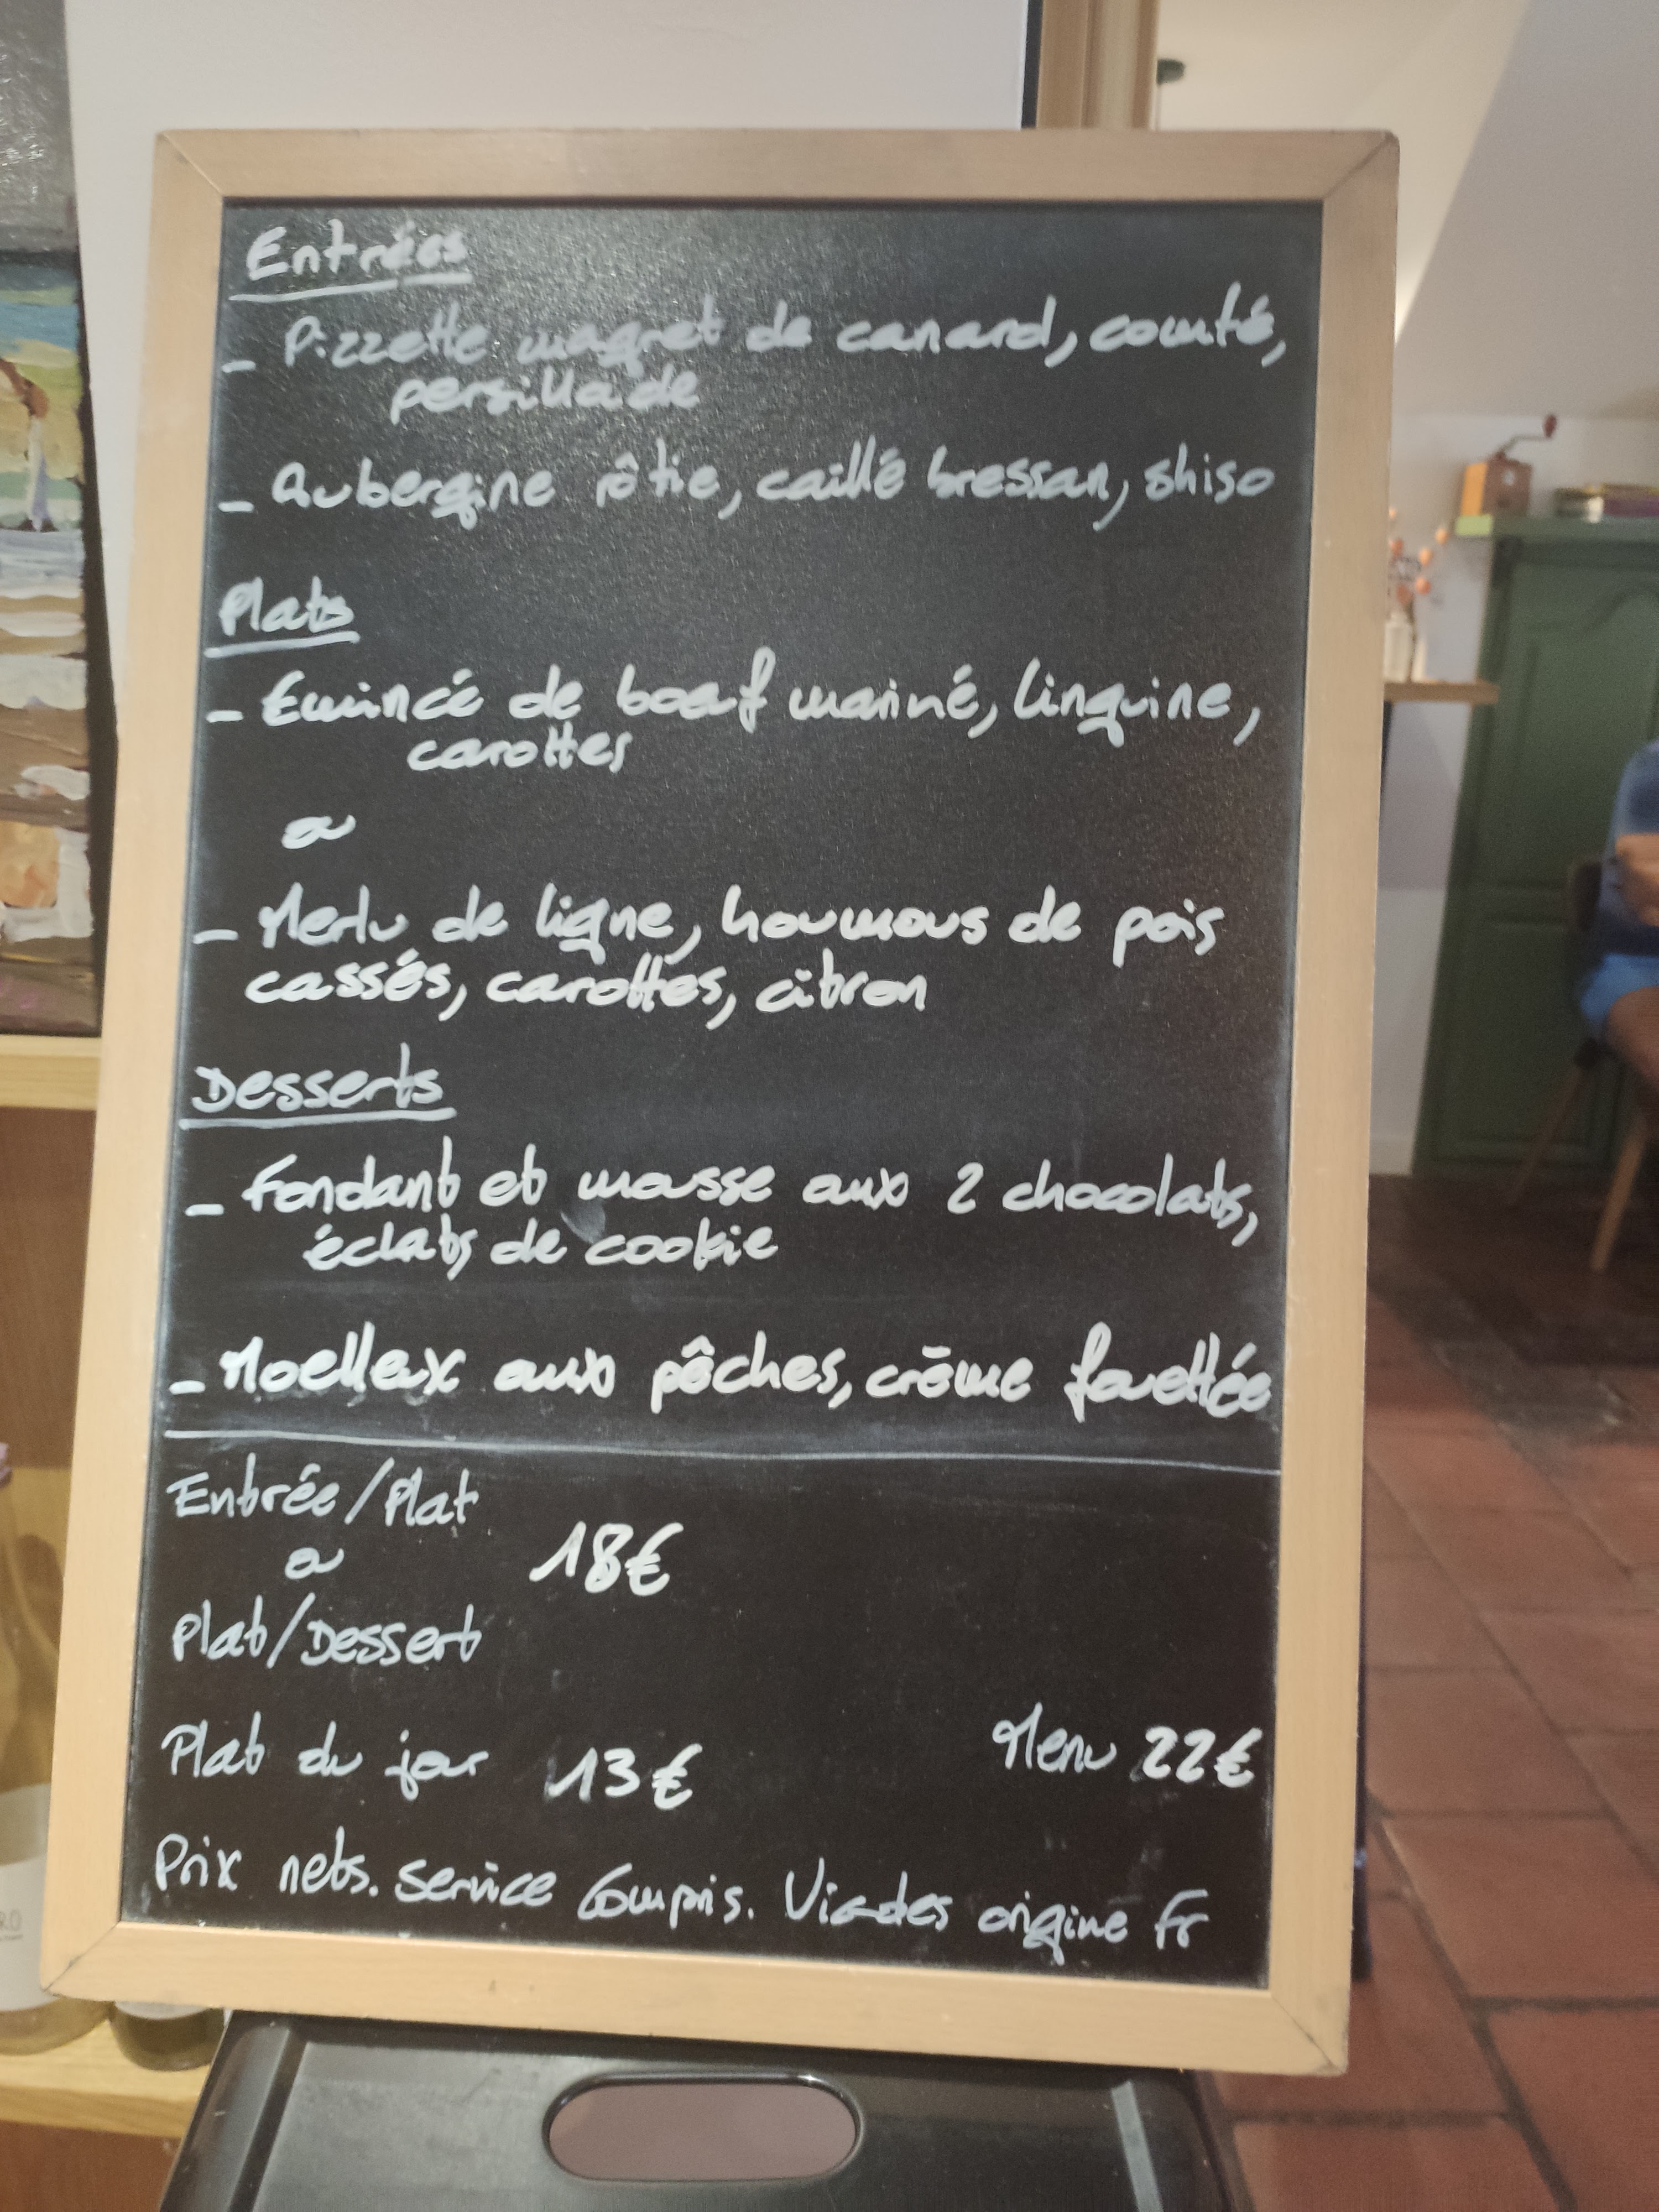 Entrées
- Pizzette magret de canard, comté,
persillade
- Aubergine rôtie, caillé bressan, shiso
Plats
- Emincé de boeuf mariné, linguine,
carottes
ou
- Merlu de ligne, houmous de pois
cassés, carottes, citron
Desserts
- Fondant et mousse aux 2 chocolats,
éclats de cookie
- Moelleux aux pêches, crème fouettée
Entrée/Plat
ou 18€
Plat/Dessert
Plat du jour 13€ Menu 22€
Prix nets. Service Compris. Viandes origine Fr